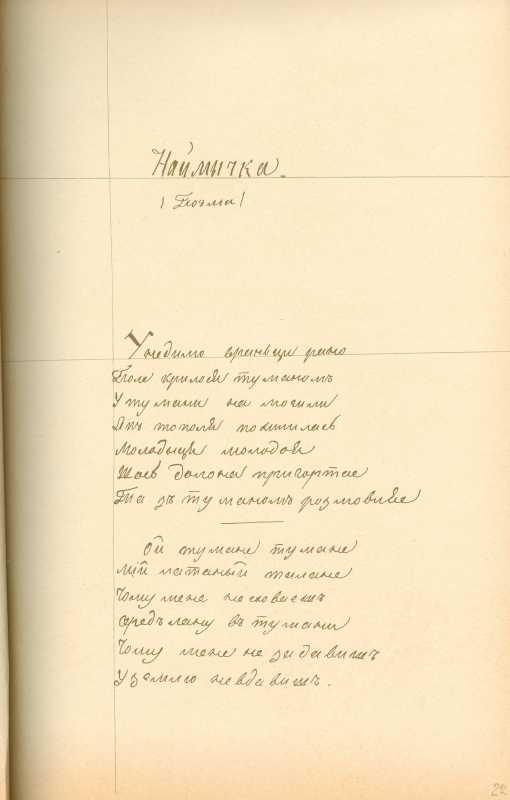 Наймычка.
(Поэма)
У недилю враньци рано
Поле крилося туманомъ
У тумани на могили
Якъ тополя похилилась
Молодыця молодая
Щось до лона пригортае
Та зъ туманомъ розмовляе
Ой тумане тумане
Мій латаный талане
Чому мене не сховаешъ
Средь лану въ тумани
Чому мене не задавишъ
У землю не вдавишъ.
22